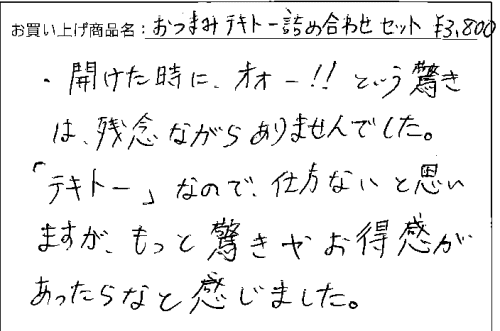 お買い上げ商品名：おつまみテキトー詰め合わせセット ¥3,800
・開けた時に、オオー!! という驚き
は、残念ながらありませんでした。
「テキトー」なので、仕方ないと思い
ますが、もっと驚きやお得感が
あったらなと感じました。